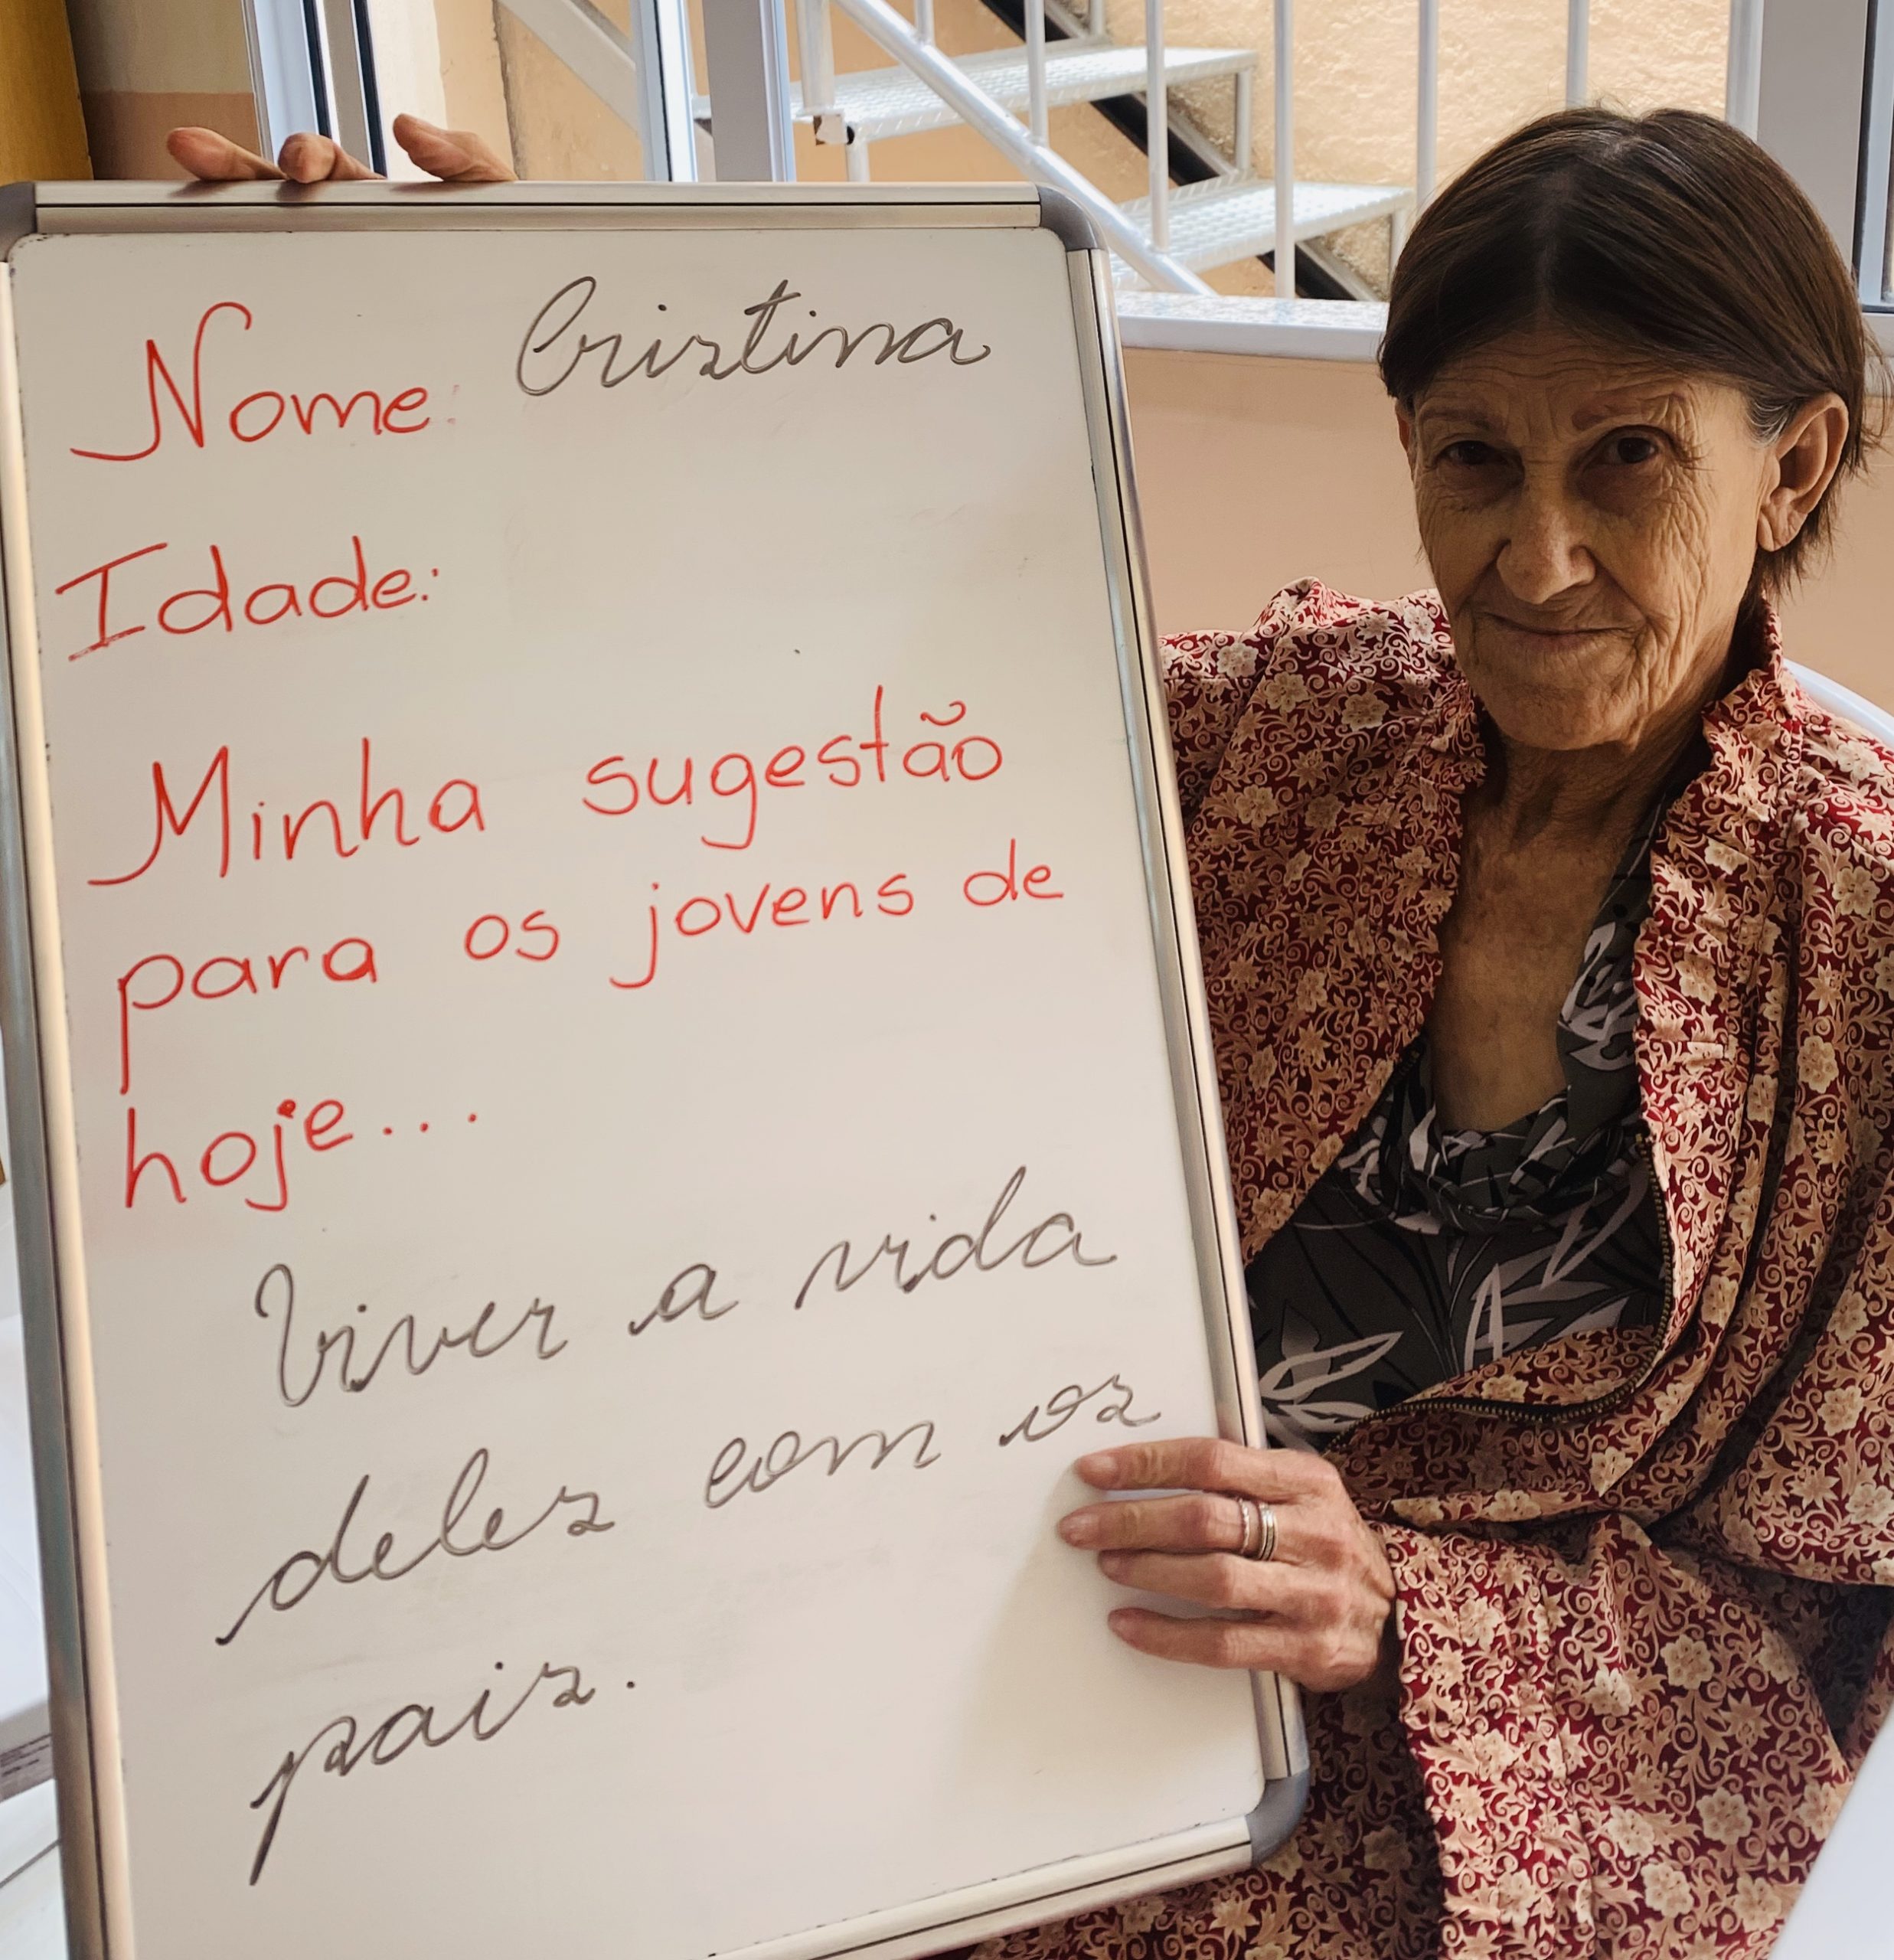 Nome: Cristina
Idade:
Minha sugestão
para os jovens de
hoje...
Viver a vida
deles com os
pais.